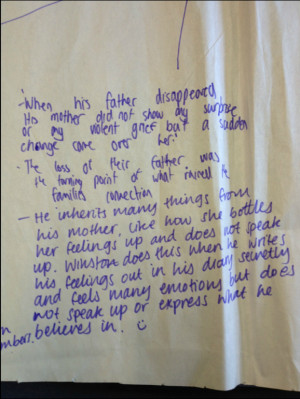 '
-When his father disappeared,
His mother did not show any surprise
or any violent grief but a sudden
change came over her.'
- The loss of their father was
the turning point of what ruined the
families connection
- He inherits many things from
his mother, like how she bottles
her feelings up and does not speak
up. Winston does this when he writes
his feelings out in his diary secretly
and feels many emotions but does
not speak up or express what he
believes in. :)
mbers.